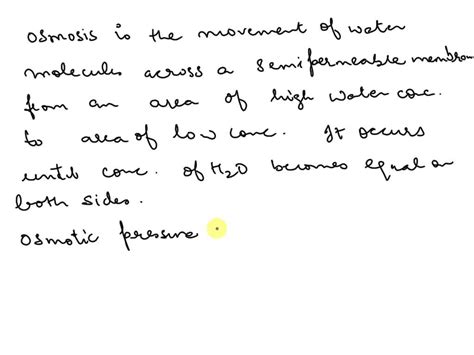 osmosis is the movement of water
molecules across a semipermeable membrane
from an area of high water conc.
to area of low conc. It occurs
until conc. of H2O becomes equal on
both sides.
osmotic pressure